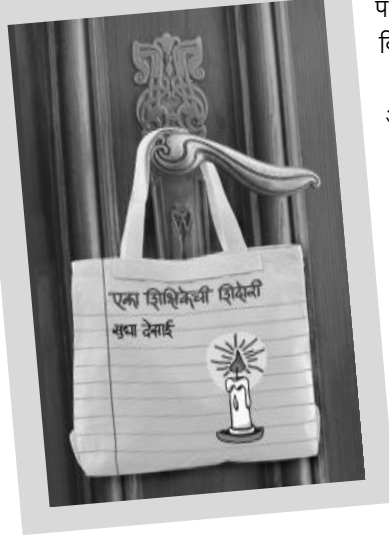 एका शिक्षिकेची शिदोरी
सुधा देसाई